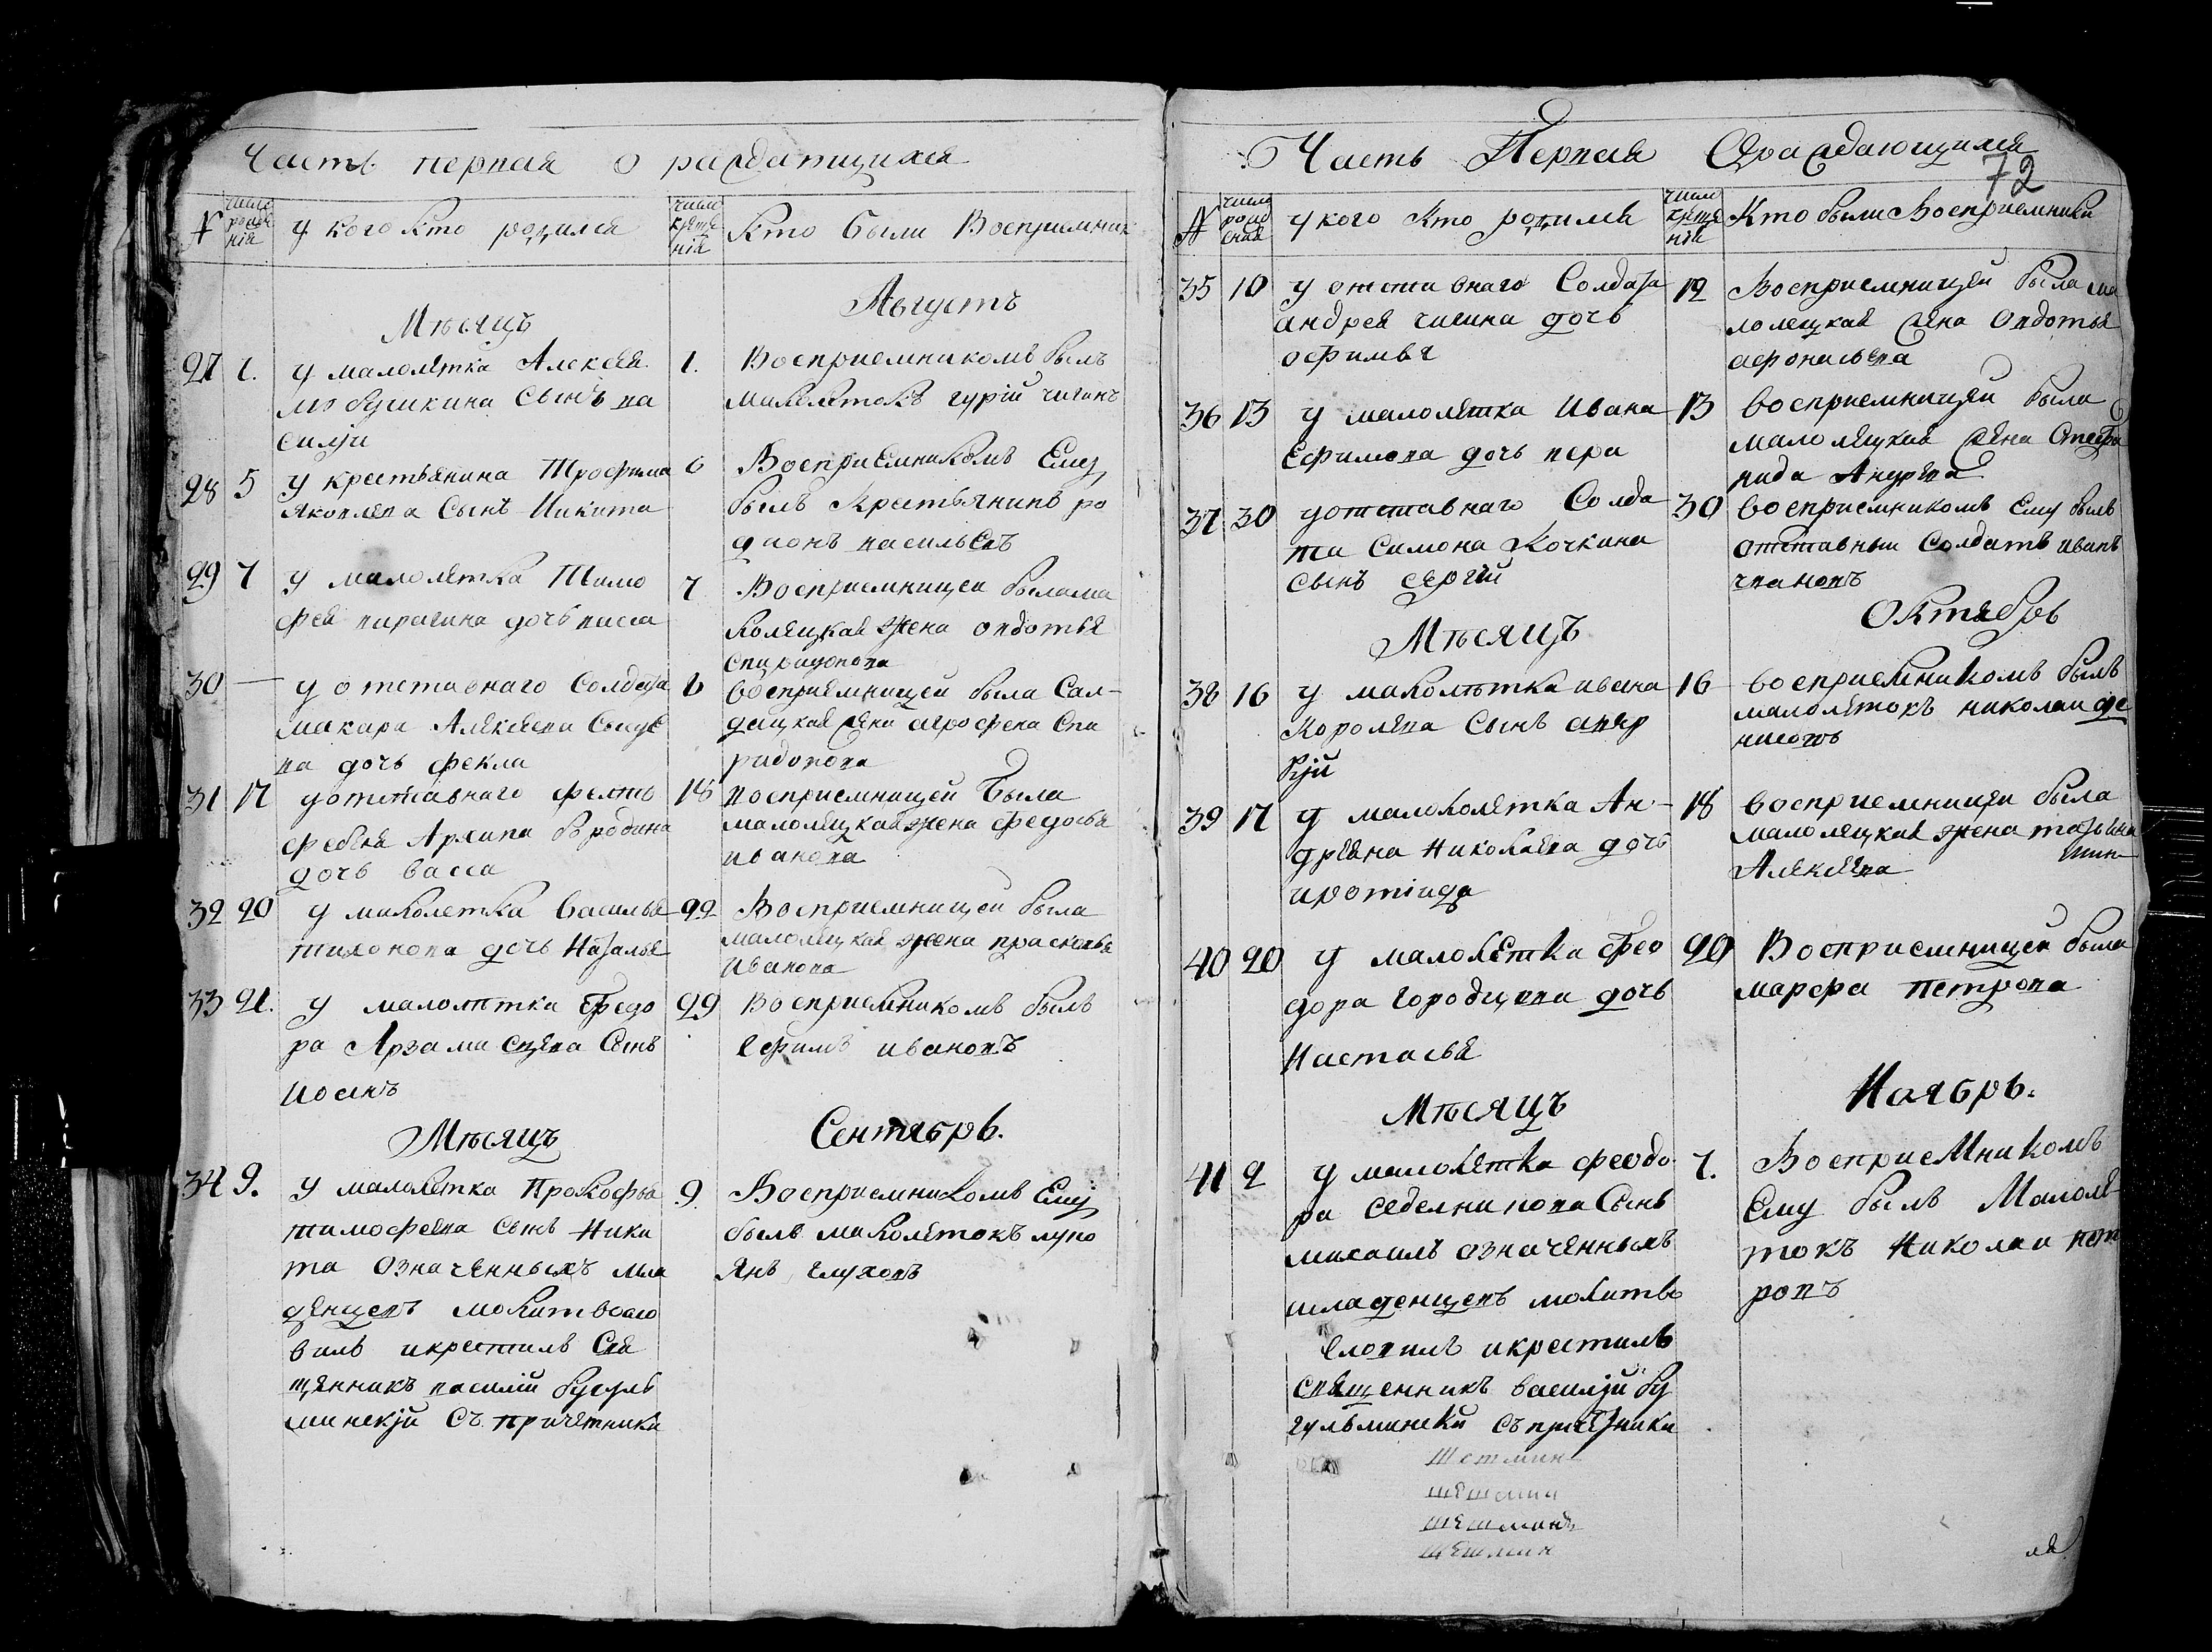 Часть первая о раждающихся
№
число рожде нія
у кого кто родился
число креще нія
Кто были Восприемник
Мѣсяцъ
Августъ
27 1.
у малолѣтка Алексѣя
лобушкина Сынъ ва
силіи
1.
Восприемникомъ былъ
малолѣтокъ гурій чигинъ
28 5
у крестьянина Трофима
яковлева Сынъ Никита
6
Восприемникомъ Ему
былъ Крестьянинъ ро
дионъ васильевъ
29 7
у малолѣтка Тимо
фея пирагина дочь васса
7
Восприемницеи была ма
лолѣцкая жена овдотья
спиридонова
30 —
у отставнаго Солдата
макара Алексѣева Сынце
ва дочь фекла
8
восприемницеи была Сал-
дацкая жена агрофена Спи
ридонова
31 17
у отставнаго фелть
фебѣля Архипа бородина
дочь васса
18
восприемницеи Была
малолѣцкая жена федосья
иванова
32 20
у малолетка василья
тихонова дочь Наталья
22
Восприемницеи была
малолѣцкая жена прасковья
Иванова
33 21.
у малолѣтка Федо
ра Арзамасцева Сынъ
иосифъ
22
Восприемникомъ былъ
ефимъ ивановъ
Мѣсяцъ
Сентябрь.
34 9.
у малолѣтка Прокофья
тимофеева сынъ Ники
та означенныхъ мла
денцевъ молитвосло
вилъ и крестилъ Свя
щенникъ василій бугуль
минскій съ причетники
9.
Восприемникомъ Ему
былъ малолѣтокъ луко
янъ глуховъ
Часть Первая О раждающихся
72
№
число рожд ения
у кого кто родился
число креще нія
Кто были Восприемники
35 10
у отставнаго Солдата
андрея чигина дочь
офимья
12
Восприемницеи была ма
лолѣцкая жена Овдотья
афонасьева
36 13
у малолѣтка Ивана
Ефимова дочь вера
13
восприемницеи была
малолѣцкая жена Степа
нида Андрѣева
37 30
у отставнаго Солда
та Симона Кочкина
сынъ сергѣй
30
восприемникомъ Ему былъ
отставныи Солдатъ иванъ
Мѣсяцъ
Октябрь
38 16
у малолѣтка ивана
Королева Сынъ
16
восприемникомъ былъ
малолѣтокъ николаи де
нисовъ
39 17
у малолѣтка Ан-
дреяна Николаева дочь
18
восприемницеи была
малолѣцкая жена татьяна
Алексѣева
40 20
у малолѣтка Фео
дора Городцова дочь
Настасья
20
Восприемницеи была
марфа Петрова
Мѣсяцъ
Ноябрь.
41 2
у малолѣтка феодо
ра седелникова Сынъ
михаилъ означенныхъ
младенцевъ молитво
словилъ и крестилъ
священникъ василіи бу
гульмински съ причетники
7.
Восприемникомъ
Ему былъ Малолѣ-
токъ Николаи пет
ровъ
Шешмин
шешмин
шешминъ
шешмин